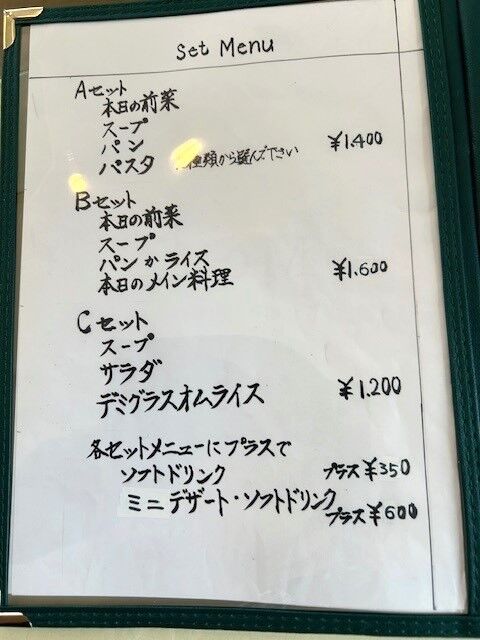 Set Menu
Aセット
本日の前菜
スープ
パン
パスタ 種類から選んで下さい
¥1.400
Bセット
本日の前菜
スープ
パンかライス
本日のメイン料理
¥1.600
Cセット
スープ
サラダ
デミグラスオムライス
¥1.200
各セットメニューにプラスで
ソフトドリンク プラス¥350
ミニデザート・ソフトドリンク
プラス¥600